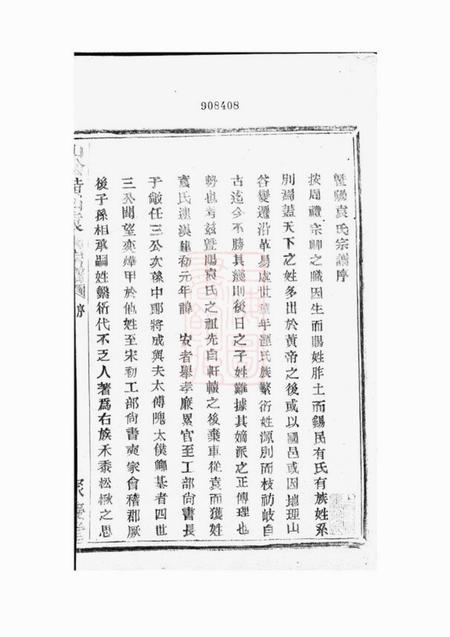 908408
暨陽袁氏宗譜序
按周禮宗卿之職因生而賜姓胙土而錫民有氏有族姓系
別焉蓋天下之姓多出於黃帝之後或以國邑或因地理山
谷變遷沿革易處世童年湮氏族繁衍姓源別而枝祊岐自
古迄今不勝其紊則後日之子姓難據其嫡派之正傳理也
勢也考茲暨陽袁氏之祖先自軒轅之後棄車從袁而獲姓
袁氏建漢建初元年諱 安者舉孝廉累官至工部尙書長
于敞任三公次蔡中郎將成興夫太傅隗太僕鄉基者四世
三公閥望奕燁甲於他姓至宋初工部尙書奭家會稽郡厥
後子孫相承嗣姓繫衍代不乏人著爲右族禾黍松楸之思
序